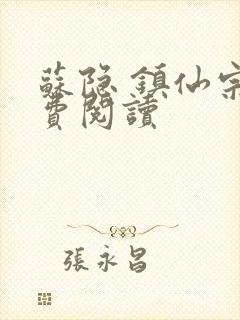 蘇隐 鎮仙宗
費閱讀
張永昌